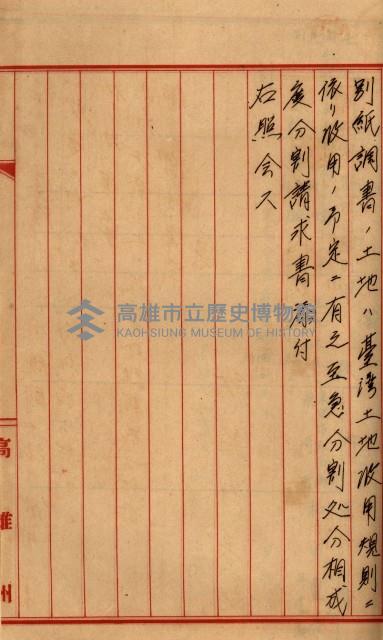 別紙調書ノ土地ハ臺灣土地收用規則ニ
依リ收用ノ予定ニ有之至急分割処分相成
度分割請求書添付
右照会ス
高雄州
高雄市立歷史博物館
KAOHSIUNG MUSEUM OF HISTORY